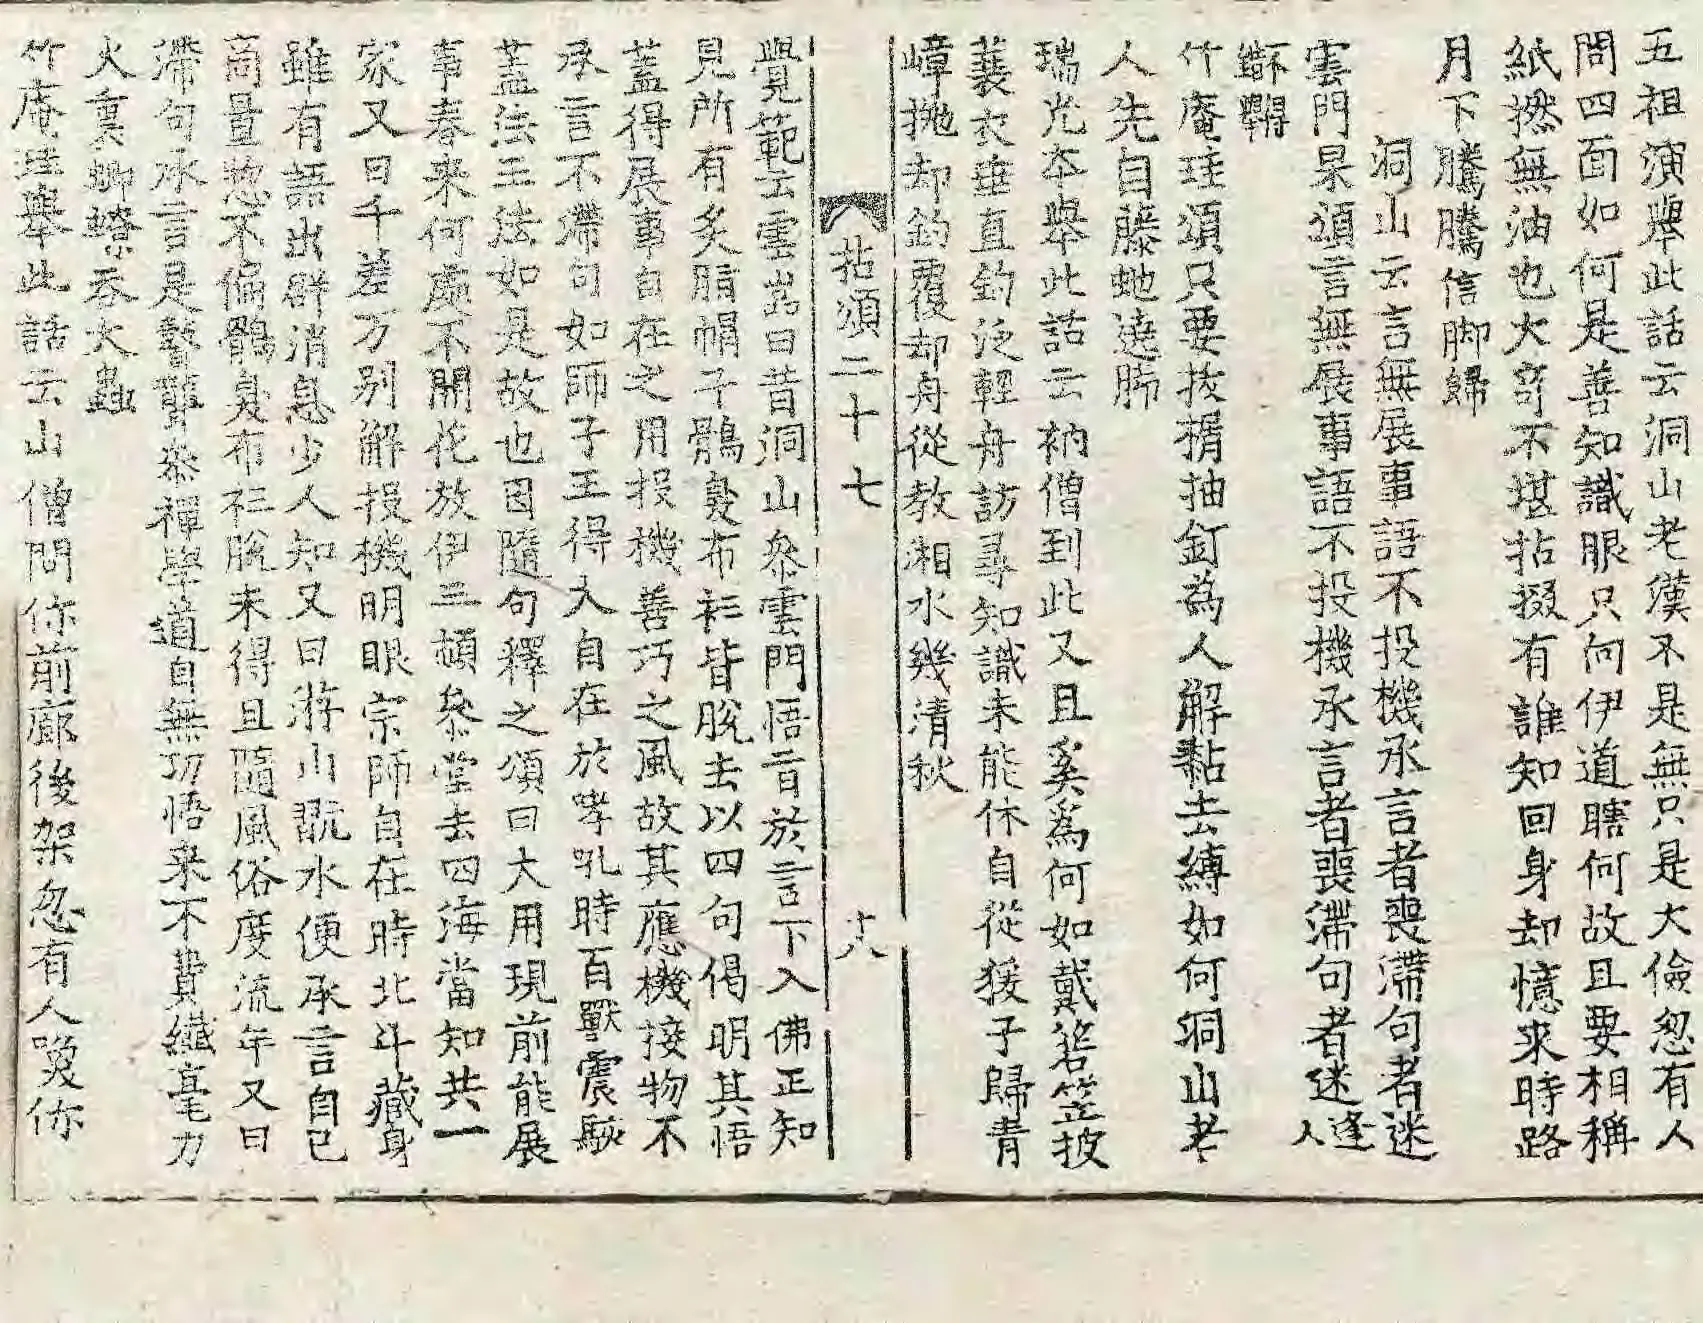 五祖演舉此話云洞山老漢不是無只是大儉忽有人
問四面如何是善知識眼只向伊道瞎何故且要相稱
紙撚無油也大奇不堪拈掇有誰知回身却憶來時路
月下騰騰信脚歸
洞山云言無展事語不投機承言者喪滯句者迷
雲門杲頌言無展事語不投機承言者喪滯句者迷逢人
不得錯舉
竹庵珪頌只要抜楔抽釘為人解黏去縛如何洞山老
人先自藤虵遶脚
瑞光本舉此話云衲僧到此又且奚為何如戴箬笠披
蓑衣垂直釣泛輕舟訪尋知識未能休自從猨子歸青
嶂抛却釣竿覆却舟從教湘水幾清秋
拈頌二十七 十八
覺範云雲嵓曰昔洞山叅雲門悟旨於言下入佛正知
見所有炙脂帽子鶻臭布衫皆脫去以四句偈明其悟
蓋得展事自在之用投機善巧之風故其應機接物不
承言不滯句如師子王得大自在於哮吼時百獸震駭
盖法王法如是故也因隨句釋之頌曰大用現前能展
事春来何處不開花放伊三頓叅堂去四海當知共一
家又曰千差万别解投機明眼宗師自在時北斗藏身
雖有語出群消息少人知又曰游山翫水便承言自己
商量惣不偏鶻臭布衫脫未得且隨風俗度流年又曰
滯句承言是瞽聾叅禪學道自無功悟来不費纖毫力
火裏蝍蟟吞大蟲
竹庵珪舉此話云山僧問你前廊後架忽有人喚你